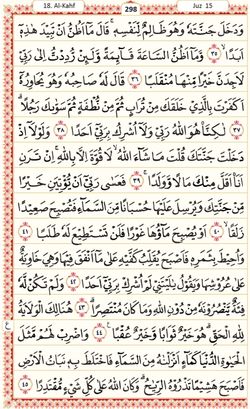 18. Al-Kahf
298
Juz 15
وَدَخَلَ جَنَّتَهُ وَهُوَ ظَالِمٌ لِّنَفْسِهِ ۚ قَالَ مَا أَظُنُّ أَن تَبِيدَ هَٰذِهِ
أَبَدًا ﴿٣٥﴾ وَمَا أَظُنُّ السَّاعَةَ قَائِمَةً وَلَئِن رُّدِدتُّ إِلَىٰ رَبِّي
لَأَجِدَنَّ خَيْرًا مِّنْهَا مُنقَلَبًا ﴿٣٦﴾ قَالَ لَهُ صَاحِبُهُ وَهُوَ يُحَاوِرُهُ
أَكَفَرْتَ بِالَّذِي خَلَقَكَ مِن تُرَابٍ ثُمَّ مِن نُّطْفَةٍ ثُمَّ سَوَّاكَ رَجُلًا ﴿٣٧﴾
لَّٰكِنَّا هُوَ اللَّهُ رَبِّي وَلَا أُشْرِكُ بِرَبِّي أَحَدًا ﴿٣٨﴾ وَلَوْلَا إِذْ
دَخَلْتَ جَنَّتَكَ قُلْتَ مَا شَاءَ اللَّهُ لَا قُوَّةَ إِلَّا بِاللَّهِ ۚ إِن تَرَنِ
أَنَا أَقَلَّ مِنكَ مَالًا وَوَلَدًا ﴿٣٩﴾ فَعَسَىٰ رَبِّي أَن يُؤْتِيَنِ خَيْرًا
مِّن جَنَّتِكَ وَيُرْسِلَ عَلَيْهَا حُسْبَانًا مِّنَ السَّمَاءِ فَتُصْبِحَ صَعِيدًا
زَلَقًا ﴿٤٠﴾ أَوْ يُصْبِحَ مَاؤُهَا غَوْرًا فَلَن تَسْتَطِيعَ لَهُ طَلَبًا ﴿٤١﴾
وَأُحِيطَ بِثَمَرِهِ فَأَصْبَحَ يُقَلِّبُ كَفَّيْهِ عَلَىٰ مَا أَنفَقَ فِيهَا وَهِيَ خَاوِيَةٌ
عَلَىٰ عُرُوشِهَا وَيَقُولُ يَا لَيْتَنِي لَمْ أُشْرِكْ بِرَبِّي أَحَدًا ﴿٤٢﴾ وَلَمْ تَكُن لَّهُ
فِئَةٌ يَنصُرُونَهُ مِن دُونِ اللَّهِ وَمَا كَانَ مُنتَصِرًا ﴿٤٣﴾ هُنَالِكَ الْوَلَايَةُ
لِلَّهِ الْحَقِّ ۚ هُوَ خَيْرٌ ثَوَابًا وَخَيْرٌ عُقْبًا ﴿٤٤﴾ وَاضْرِبْ لَهُم مَّثَلَ
الْحَيَاةِ الدُّنْيَا كَمَاءٍ أَنزَلْنَاهُ مِنَ السَّمَاءِ فَاخْتَلَطَ بِهِ نَبَاتُ الْأَرْضِ
فَأَصْبَحَ هَشِيمًا تَذْرُوهُ الرِّيَاحُ ۗ وَكَانَ اللَّهُ عَلَىٰ كُلِّ شَيْءٍ مُّقْتَدِرًا ﴿٤٥﴾